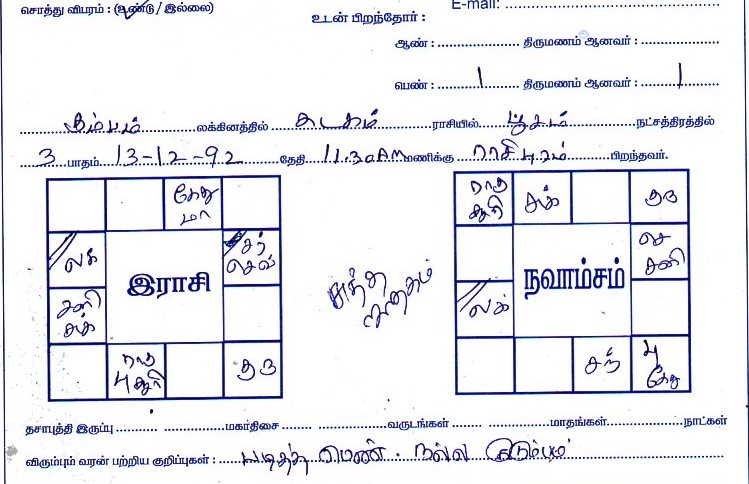 சொத்து விபரம் : (உண்டு / இல்லை)
E-mail: ........................
உடன் பிறந்தோர் :
ஆண் : .................... திருமணம் ஆனவர் : ....................
பெண் : 1 திருமணம் ஆனவர் : 1
கும்பம் லக்கினத்தில் கடகம் ராசியில் பூசம் நட்சத்திரத்தில்
3 பாதம் 13-12-92 தேதி 11.30 AM மணிக்கு ராசிபுரம் பிறந்தவர்.
கேது
மா
லக்
சந்
செவ்
இராசி
சனி
சுக்
ராகு
பு சூரி
குரு
சுத்த
ஜாதகம்
ராகு
சூரி
சுக்
குரு
செ
சனி
நவாம்சம்
லக்
சந்
பு
கேது
தசாபுத்தி இருப்பு ............ மகாதிசை ............ வருடங்கள் ............ மாதங்கள் ............ நாட்கள்
விரும்பும் வரன் பற்றிய குறிப்புகள் : படித்த பெண். நல்ல குடும்பம்